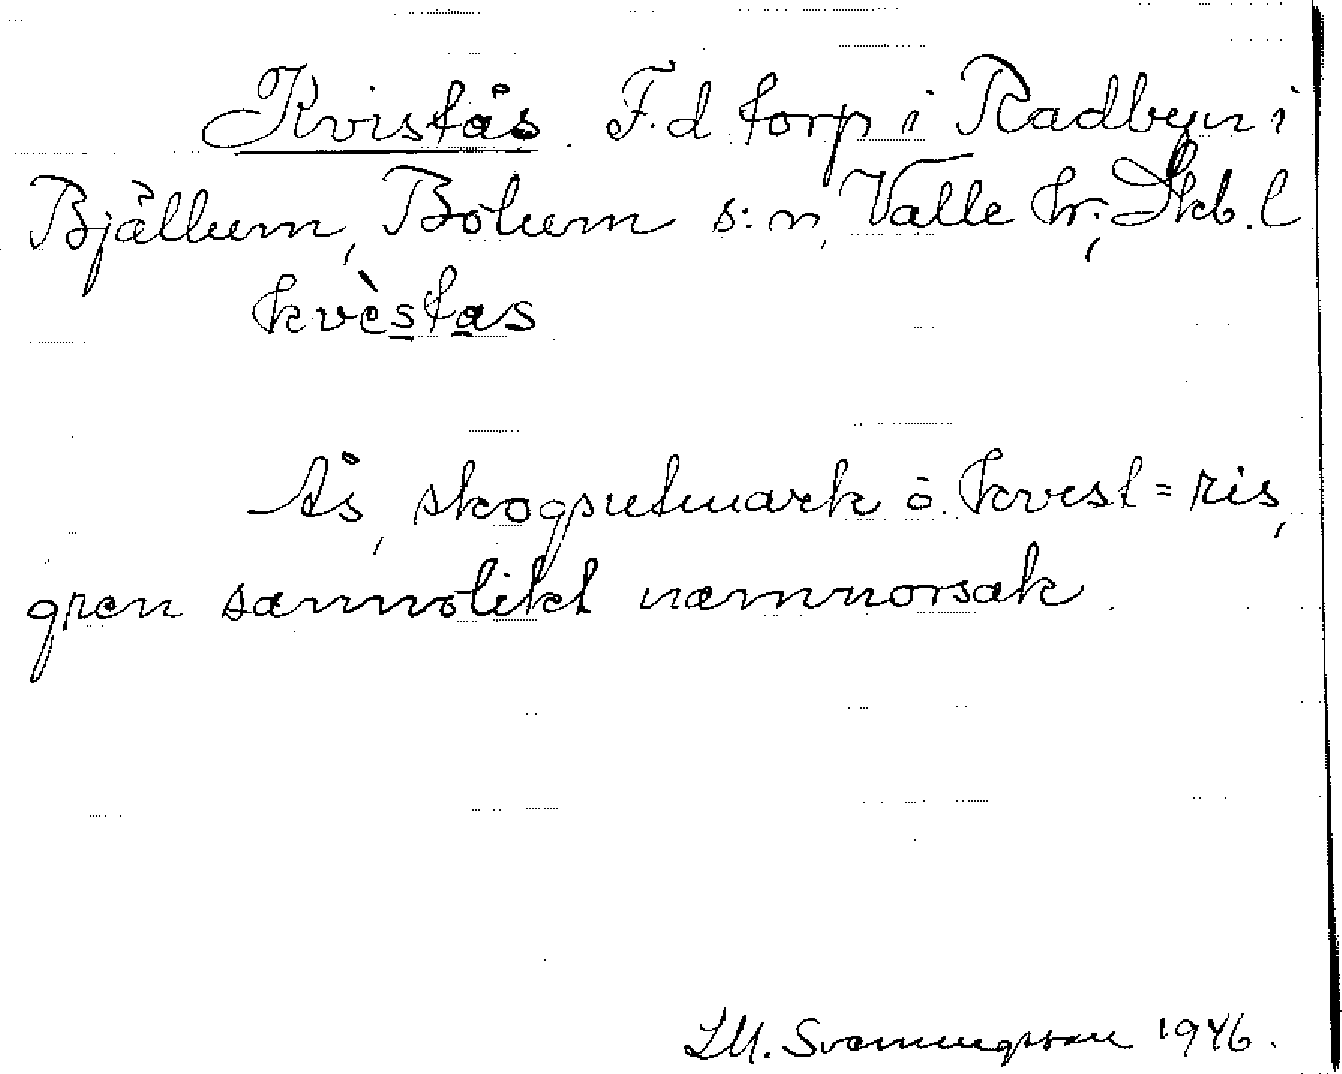 Kvistås F.d torp i Radbyn i
Bjällum, Bolum s:n, Valle hr, Skb. l
kvèstas
Ås, skogsutmark o. kvest = ris,
gren sannolikt namnorsak.
LM. Svenungsson 1946.